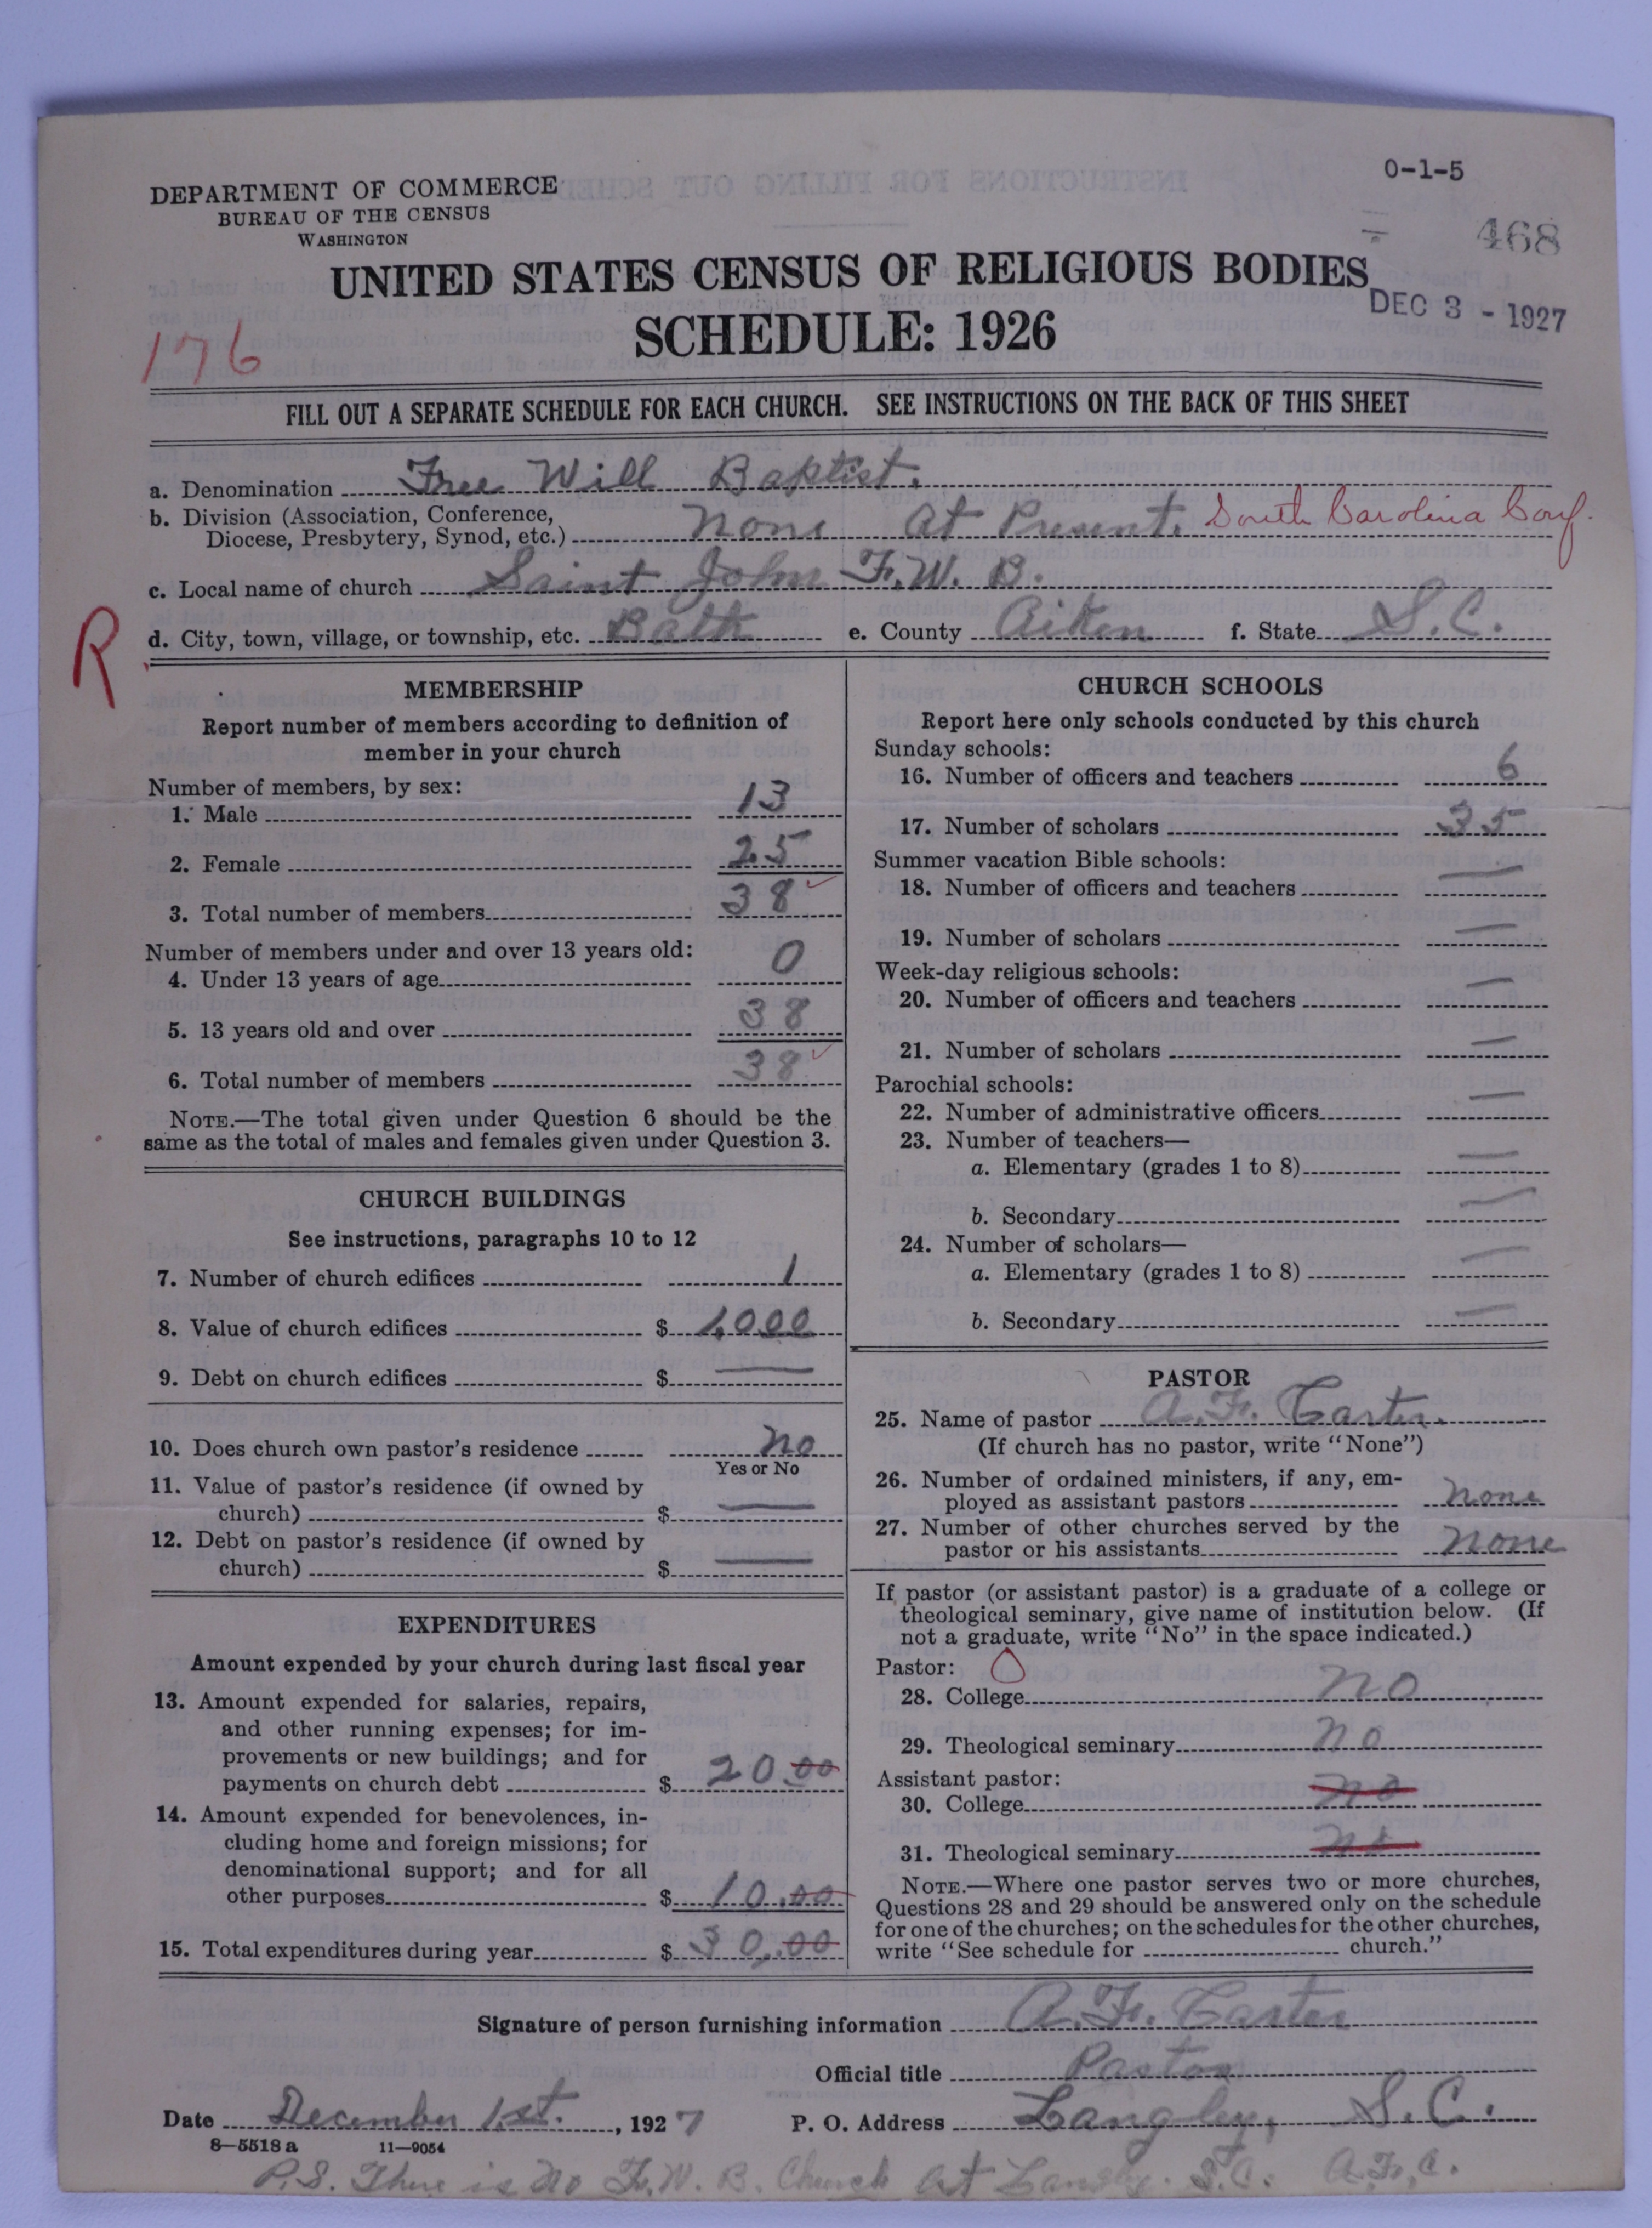 0-1-5
DEPARTMENT OF COMMERCE
BUREAU OF THE CENSUS
WASHINGTON
468
UNITED STATES CENSUS OF RELIGIOUS BODIES
DEC 3 - 1927
SCHEDULE: 1926
176
FILL OUT A SEPARATE SCHEDULE FOR EACH CHURCH. SEE INSTRUCTIONS ON THE BACK OF THIS SHEET
a. Denomination Free Will Baptist.
b. Division (Association, Conference,
Diocese, Presbytery, Synod, etc.) None at Present. South Carolina Conf.
c. Local name of church Saint John F. W. B.
R
d. City, town, village, or township, etc. Bath e. County Aiken f. State S.C.
MEMBERSHIP
Report number of members according to definition of
member in your church
Number of members, by sex:
1. Male 13
2. Female 25
3. Total number of members 38
Number of members under and over 13 years old:
4. Under 13 years of age 0
5. 13 years old and over 38
6. Total number of members 38
NOTE.—The total given under Question 6 should be the
same as the total of males and females given under Question 3.
CHURCH BUILDINGS
See instructions, paragraphs 10 to 12
7. Number of church edifices 1
8. Value of church edifices $ 1,000
9. Debt on church edifices $ —
10. Does church own pastor's residence No
Yes or No
11. Value of pastor's residence (if owned by
church) $ —
12. Debt on pastor's residence (if owned by
church) $ —
EXPENDITURES
Amount expended by your church during last fiscal year
13. Amount expended for salaries, repairs,
and other running expenses; for im-
provements or new buildings; and for
payments on church debt $ 20.00
14. Amount expended for benevolences, in-
cluding home and foreign missions; for
denominational support; and for all
other purposes $ 10.00
15. Total expenditures during year $ 30.00
CHURCH SCHOOLS
Report here only schools conducted by this church
Sunday schools:
16. Number of officers and teachers 6
17. Number of scholars 35
Summer vacation Bible schools:
18. Number of officers and teachers —
19. Number of scholars —
Week-day religious schools:
20. Number of officers and teachers —
21. Number of scholars —
Parochial schools:
22. Number of administrative officers —
23. Number of teachers—
a. Elementary (grades 1 to 8) —
b. Secondary —
24. Number of scholars—
a. Elementary (grades 1 to 8) —
b. Secondary —
PASTOR
25. Name of pastor A. F. Carter.
(If church has no pastor, write "None")
26. Number of ordained ministers, if any, em-
ployed as assistant pastors none
27. Number of other churches served by the
pastor or his assistants none
If pastor (or assistant pastor) is a graduate of a college or
theological seminary, give name of institution below. (If
not a graduate, write "No" in the space indicated.)
Pastor: 0
28. College no
29. Theological seminary no
Assistant pastor:
30. College no
31. Theological seminary no
NOTE.—Where one pastor serves two or more churches,
Questions 28 and 29 should be answered only on the schedule
for one of the churches; on the schedules for the other churches,
write "See schedule for church."
Signature of person furnishing information A. F. Carter
Official title Pastor
Date December 1st., 1927 P. O. Address Langley, S.C.
8—5518 a 11—9054
P.S. There is no F. W. B. Church at Langley. S.C. A.F.C.